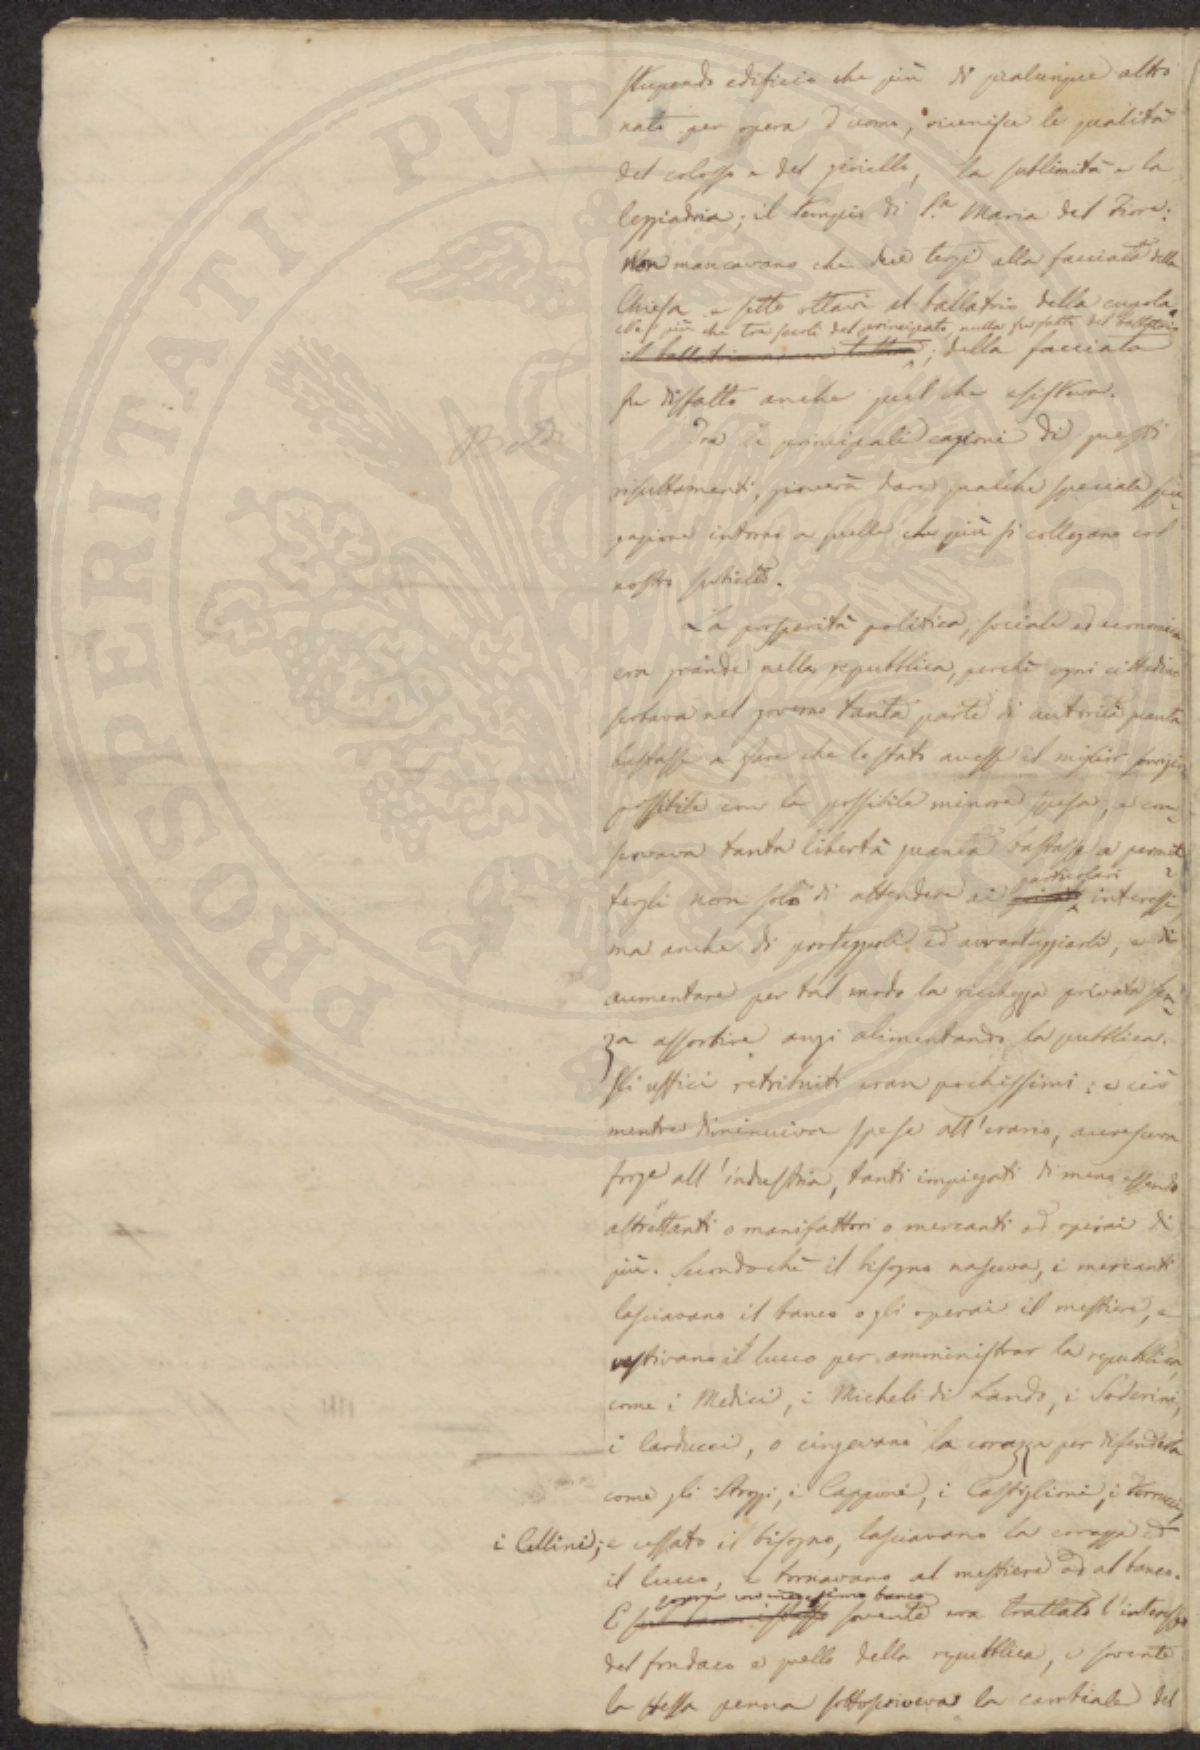 stupendo edificio che più di qualunque altro
nato per opera d'uomo, riunisce le qualità
del colosso e del gioiello, la sublimità e la
leggiadria; il tempio di S.a Maria del Fiore:
Non mancavano che due terzi alla facciata della
Chiesa e sette ottavi al ballatoio della cupola,
più che tre secoli del principato, nulla fu fatto del ballatoio
il ballatoio; della facciata
fu disfatto anche quel che esisteva.
Tra le principali cagioni di questi
risultamenti, gioverà dare qualche speciale spie-
gazione intorno a quelle che più si collegano col
nostro subietto.
La prosperità politica, sociale ed economica
era grande nella repubblica, perchè ogni cittadino
serbava nel governo tanta parte di autorità quanta
bastasse a fare che lo stato avesse il miglior servizio
possibile con la possibile minore spesa, e con-
servava tanta libertà quanta bastasse a permet-
tergli non solo di attendere ai particolari interessi,
ma anche di proteggerli ed avvantaggiarli, e di
aumentare per tal modo la ricchezza privata sen-
za assorbire anzi alimentando la pubblica.
Gli uffici retribuiti eran pochissimi: e ciò
mentre diminuiva spese all'erario, accresceva
forze all'industria, tanti impiegati di meno essendo
altrettanti o manifattori o mercanti od operai di
più. Secondochè il bisogno nasceva, i mercanti
lasciavano il banco o gli operai il mestiere, e
vestivano il lucco per amministrar la repubblica,
come i Medici, i Micheli di Lando, i Soderini,
i Carducci, o cingevano la corazza per difenderla
come gli Strozzi, i Capponi, i Castiglioni, i Ferrucci,
i Cellini; e cessato il bisogno, lasciavano la corazza ed
il lucco, e tornavano al mestiere od al banco.
sopra un medesimo banco
E sovente era trattato l'interesse
del fondaco e quello della repubblica, e sovente
la stessa penna sottoscriveva la cambiale del
PROSPERITATI PVBLICAE